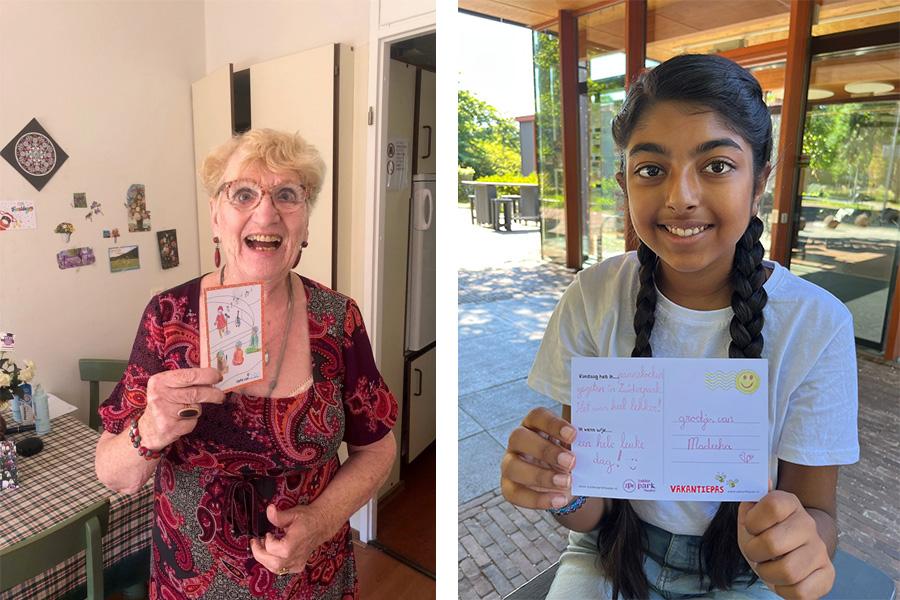 Vandaag heb ik... pannenkoeken
gegeten in Zuiderpark
Het was heel lekker!
Ik wens u/je...
een hele leuke
dag!
groetjes van
Madeeha
zuiderparktheater
VAKANTIEPAS